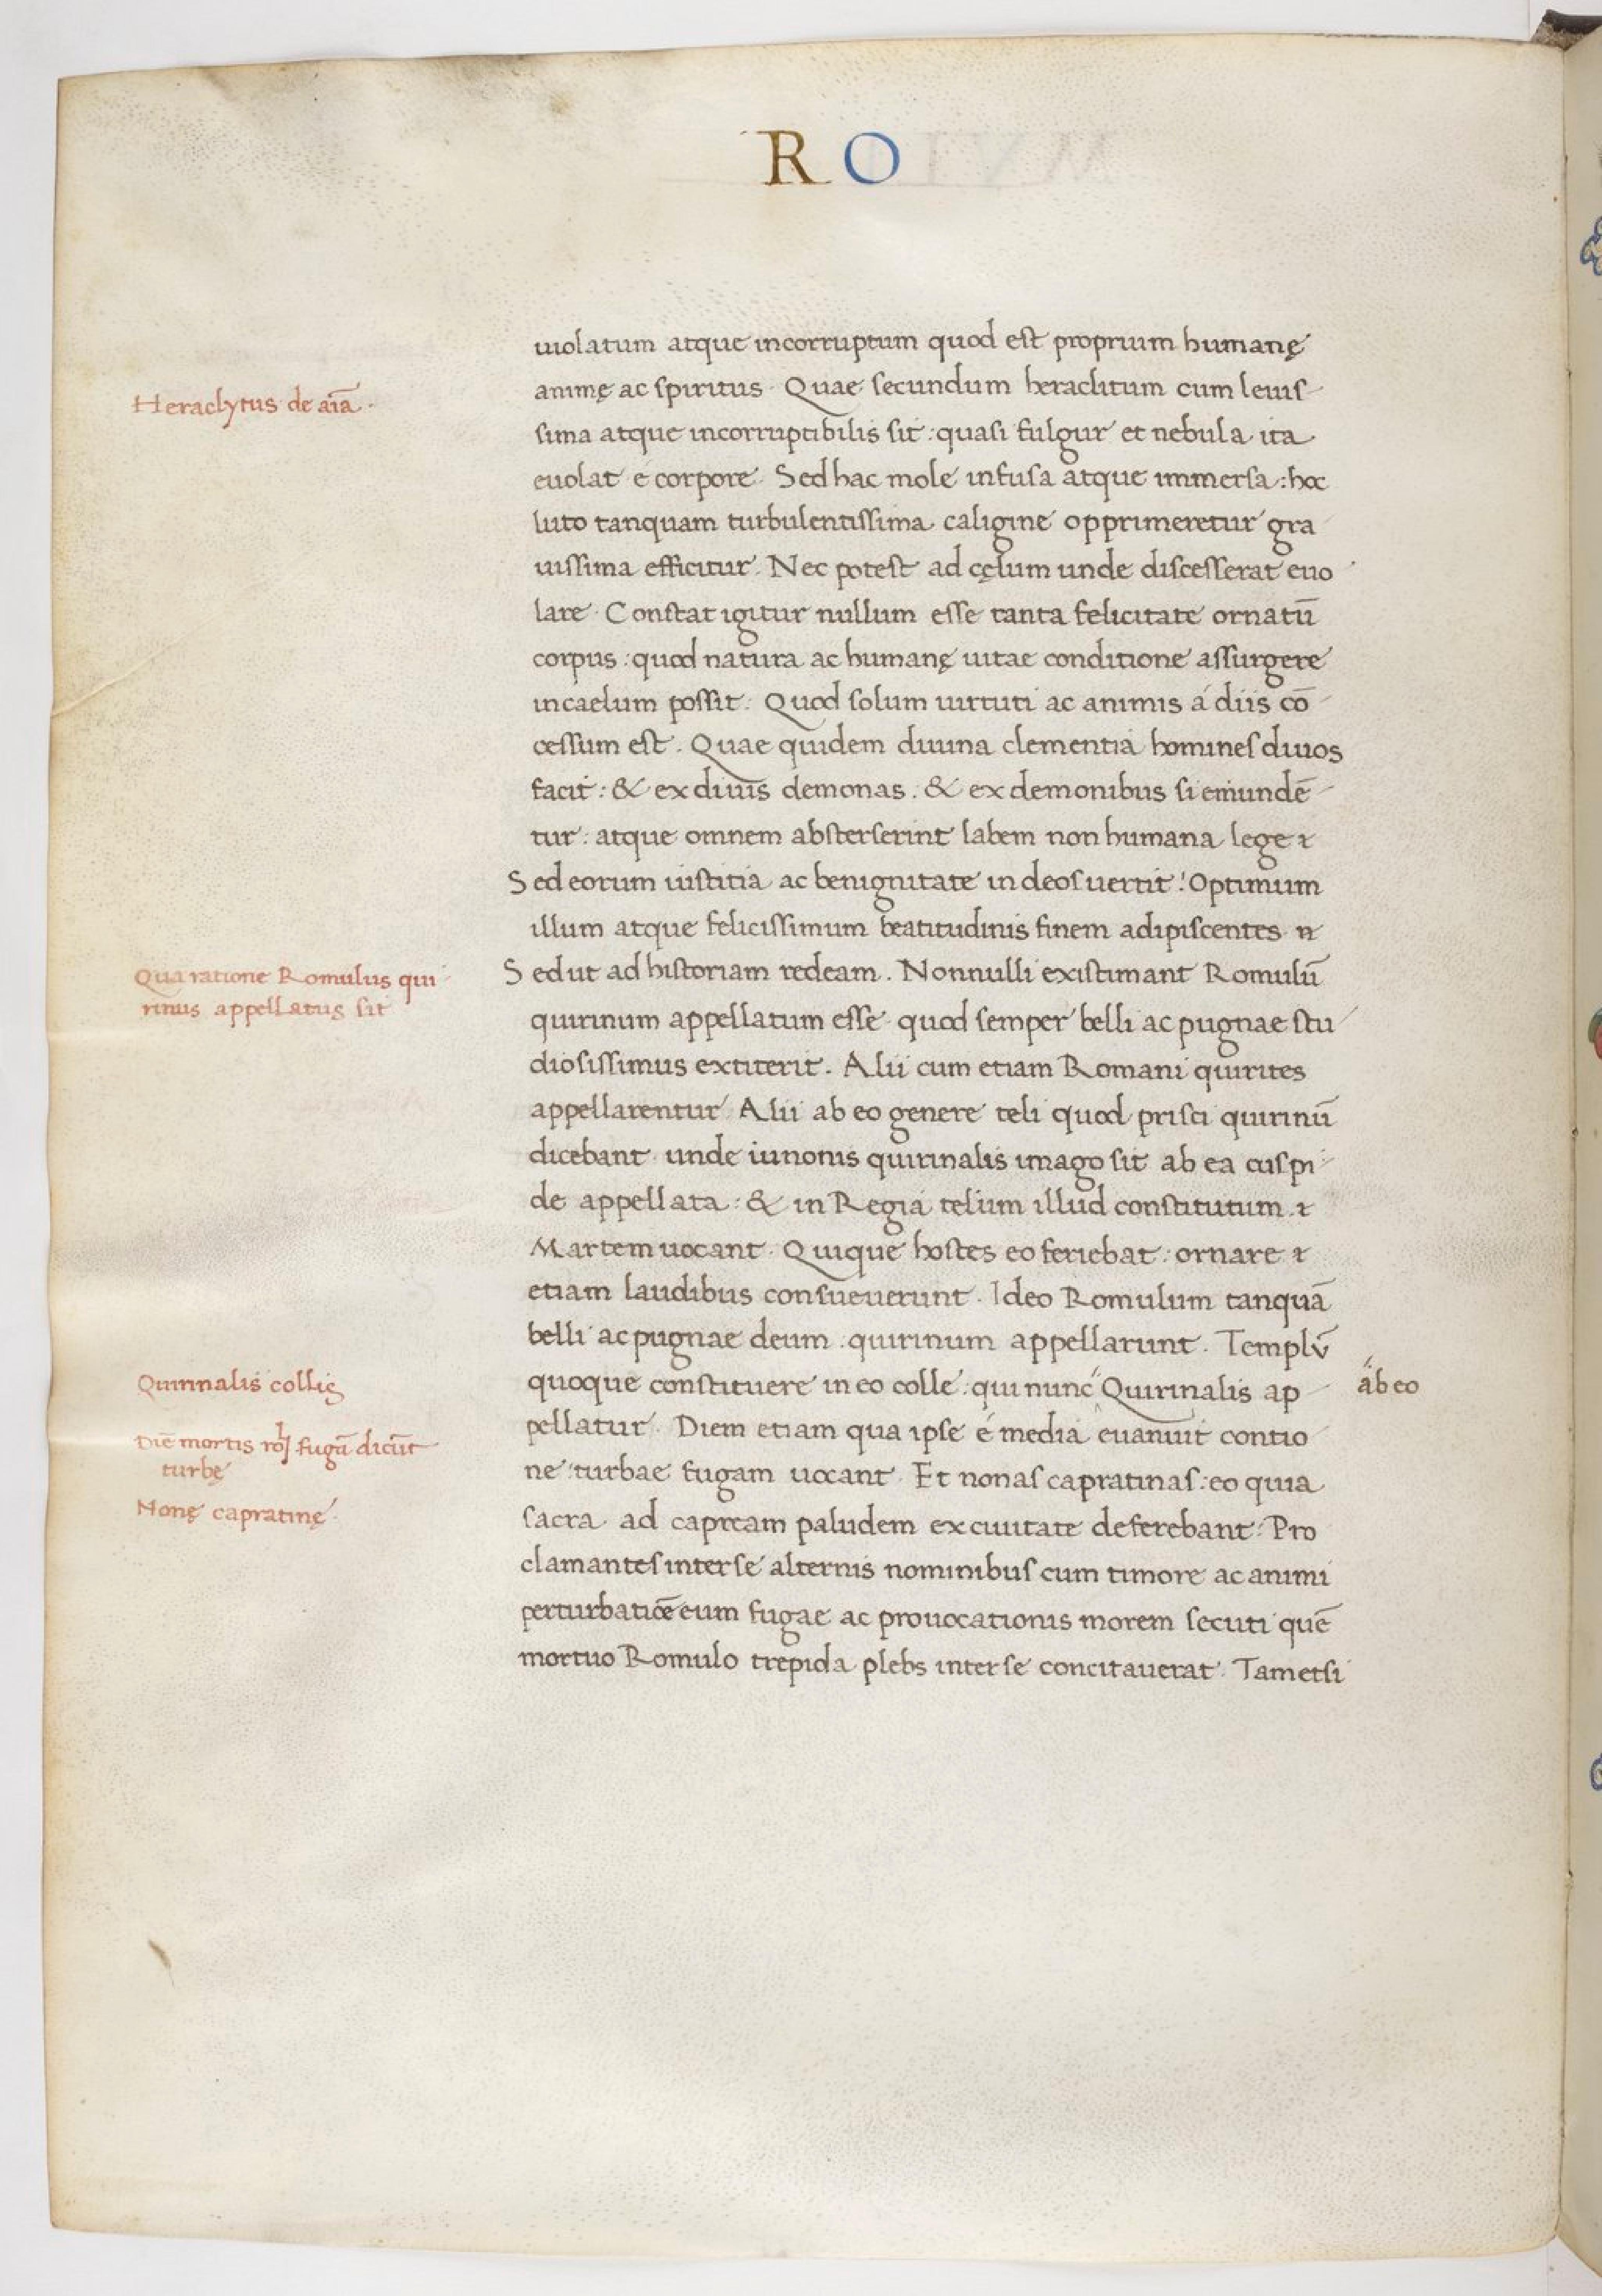 RO
uiolatum atque incorruptum quod est proprium humanę
animę ac spiritus. Quae secundum heraclitum cum leuis-
Heraclytus de aīa.
sima atque incorruptibilis sit: quasi fulgur et nebula ita
euolat é corpore. Sed hac mole infusa atque immersa: hoc
luto tanquam turbulentissima caligine opprimeretur gra
uissima efficitur. Nec potest ad cęlum unde discesserat euo
lare. Constat igitur nullum esse tanta felicitate ornatū
corpus: quod natura ac humanę uitae conditione assurgere
in caelum possit. Quod solum uirtuti ac animis á diis cō-
cessum est. Quae quidem diuina clementia homines diuos
facit: & ex diuis demonas. & ex demonibus si emundē-
tur: atque omnem absterserint labem non humana lege
Sed eorum iustitia ac benignitate in deos uertit: Optimum
illum atque felicissimum beatitudinis finem adipiscentes
Sed ut ad historiam redeam. Nonnulli existimant Romulū
Qua ratione Romulus qui-
rinus appellatus sit
quirinum appellatum esse quod semper belli ac pugnae stu
diosissimus extiterit. Alii cum etiam Romani quirites
appellarentur. Alii ab eo genere teli quod prisci quirinū
dicebant unde iunonis quirinalis imago sit ab ea cuspi-
de appellata: & in Regia telum illud constitutum
Martem uocant. Quique hostes eo feriebat: ornare
etiam laudibus consueuerunt. Ideo Romulum tanquā
belli ac pugnae deum quirinum appellarunt. Templū
quoque constituere in eo colle: qui nunc Quirinalis ap-
ab eo
Quirinalis collis
pellatur. Diem etiam qua ipse é media euanuit contio
Diē mortis fugā dicūt
turbę
ne turbae fugam uocant. Et nonas capratinas: eo quia
Nonę capratinę.
sacra ad capream paludem ex ciuitate deferebant: Pro
clamantes inter se alternis nominibus cum timore ac animi
perturbatiōe eum fugae ac prouocationis morem secuti quē
mortuo Romulo trepida plebs inter se concitauerat. Tametsi